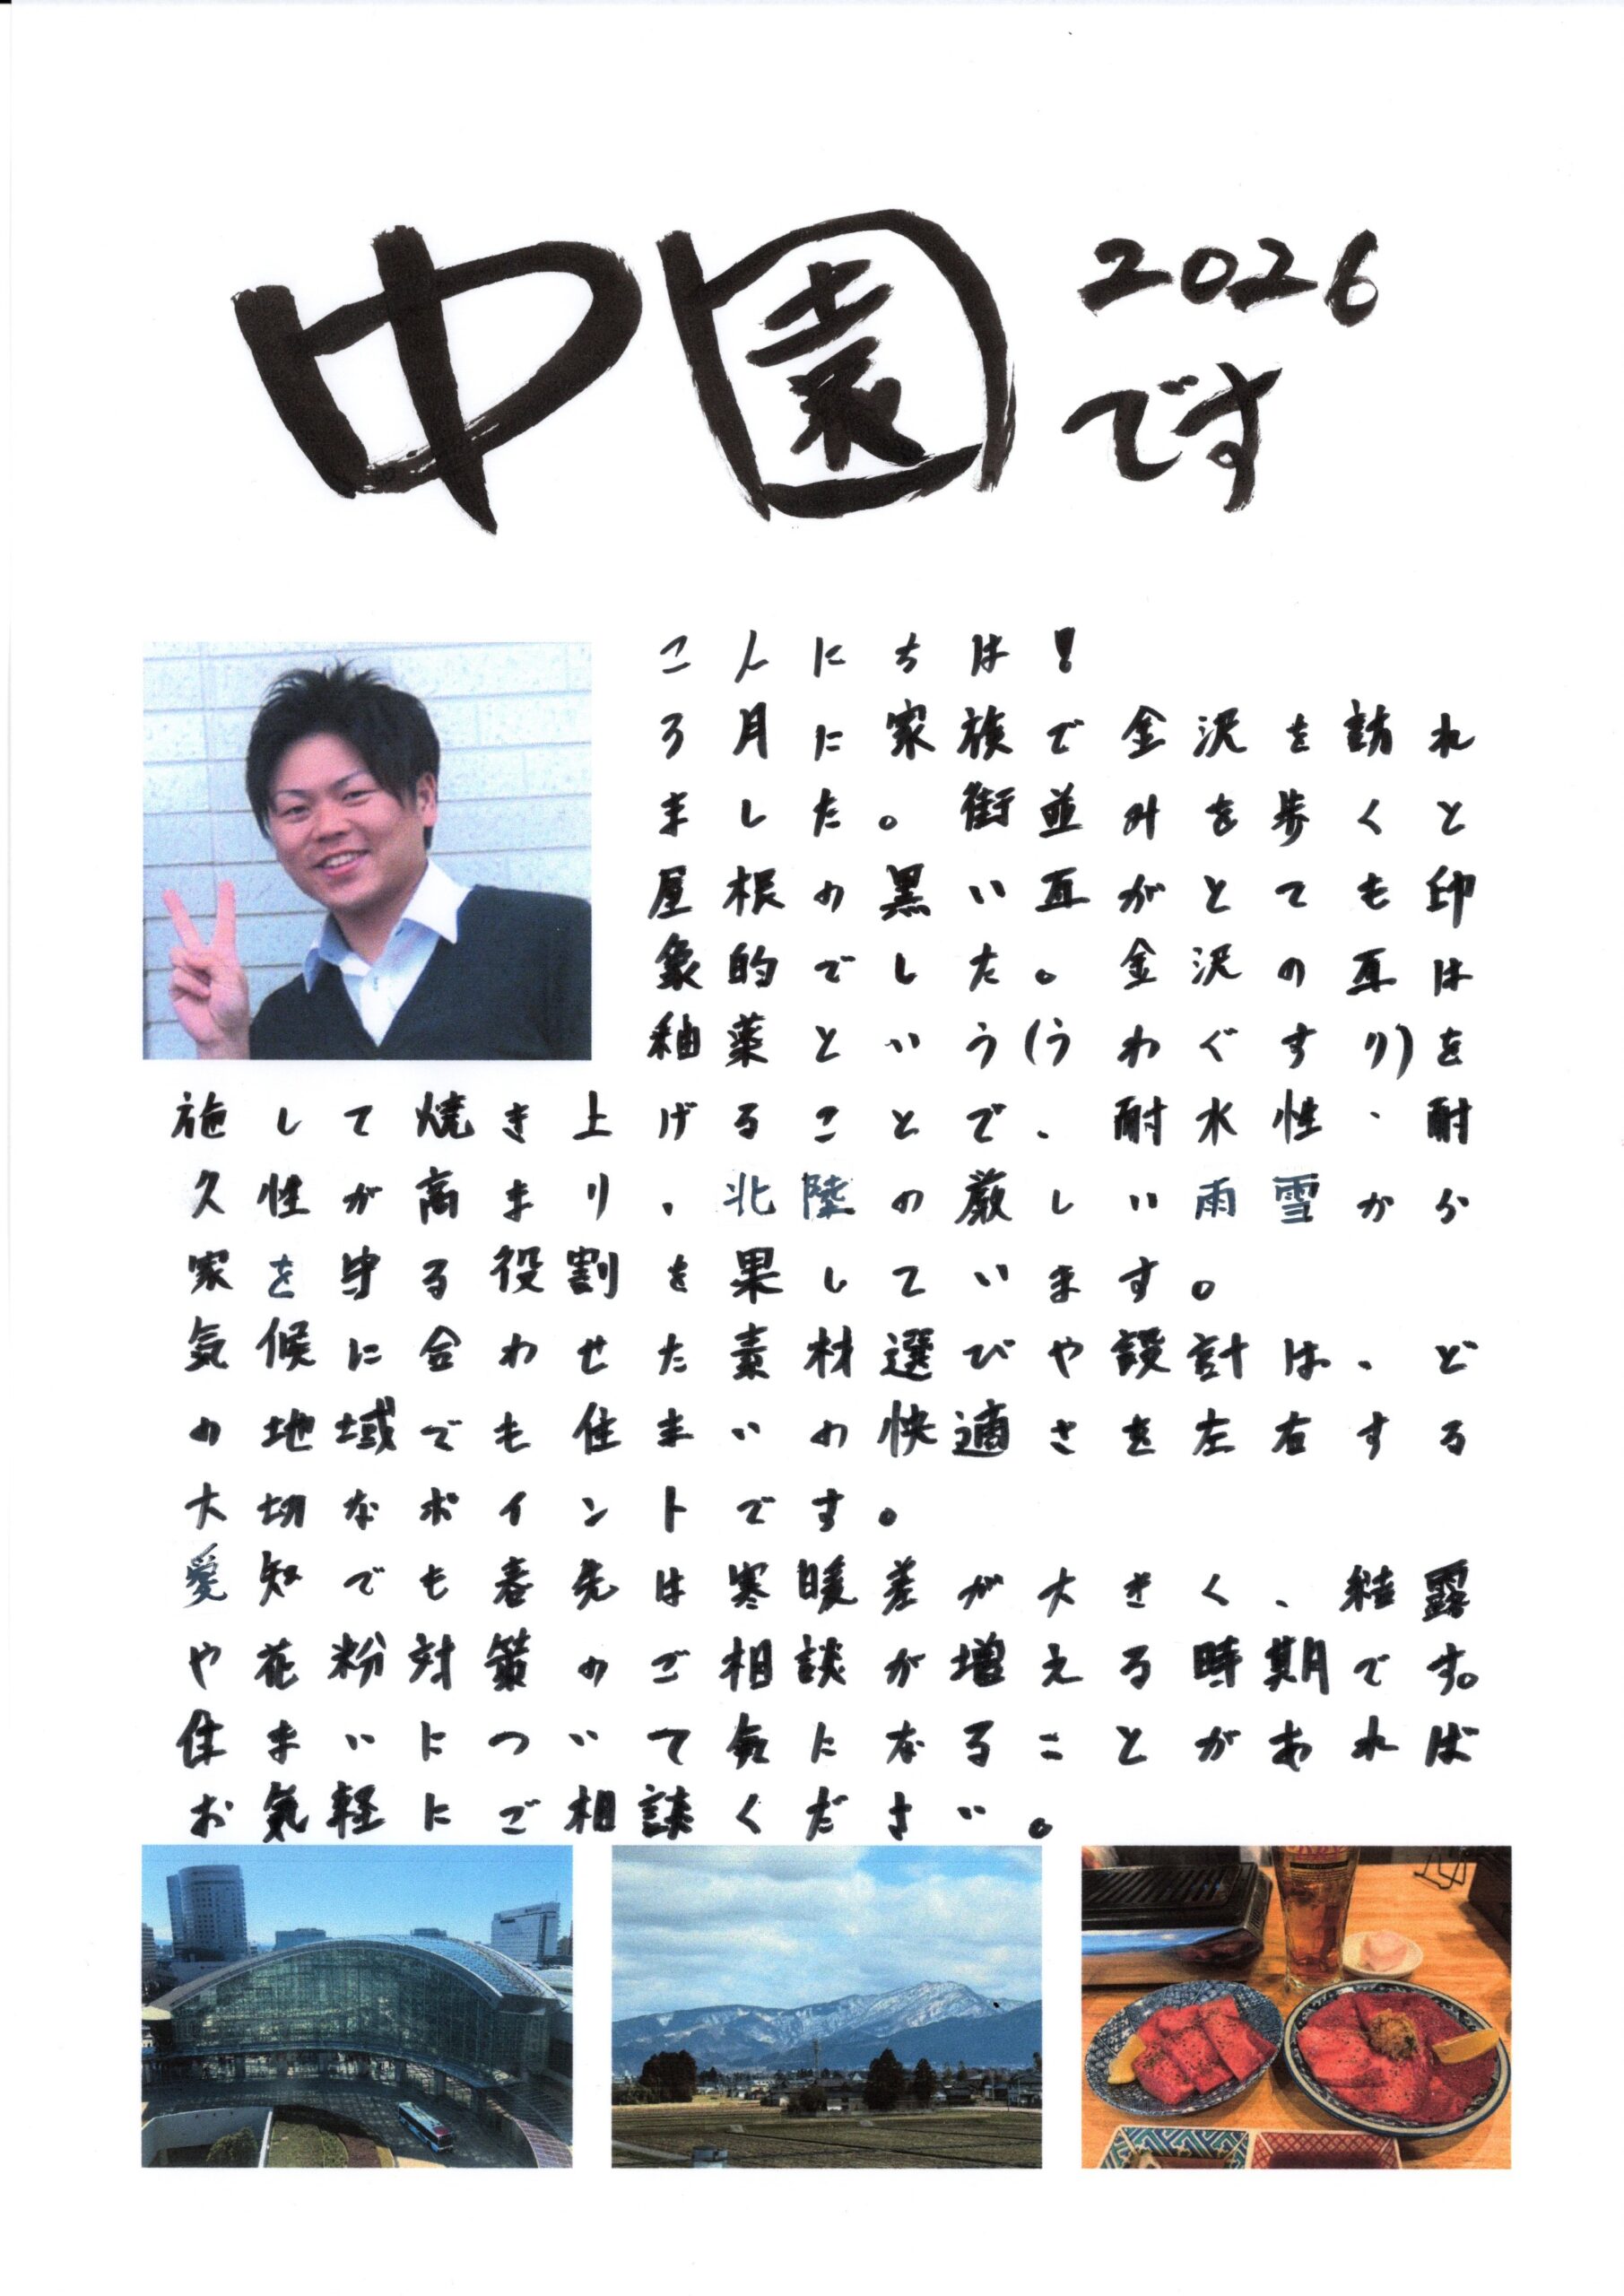 中園 2026
です
こんにちは!
3月に家族で金沢を訪れ
ました。街並みを歩くと
屋根の黒い瓦がとても印
象的でした。金沢の瓦は
釉薬という(うわぐすり)を
施して焼き上げることで、耐水性、耐
久性が高まり、北陸の厳しい雨雪から
家を守る役割を果しています。
気候に合わせた素材選びや設計は、ど
の地域でも住まいの快適さを左右する
大切なポイントです。
愛知でも春先は寒暖差が大きく、結露
や花粉対策のご相談が増える時期です。
住まいについて気になることがあれば
お気軽にご相談ください。